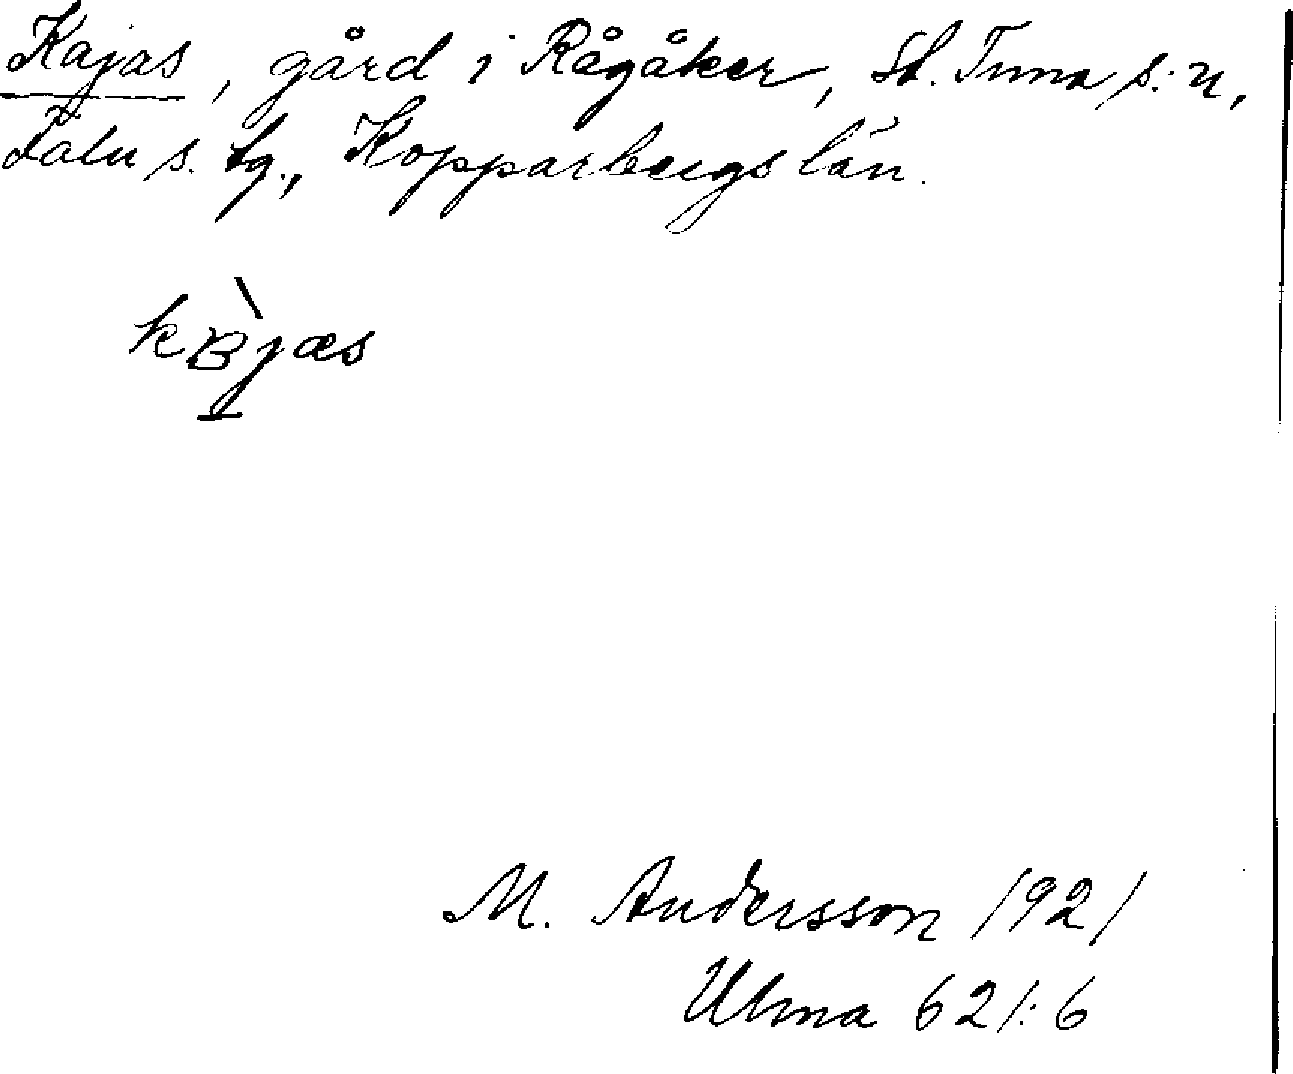 Kajas, gård i Rågåker, St. Tuna s:n,
Falu s. tg., Kopparbergs län.
M. Andersson 1921
Ulma 621:6